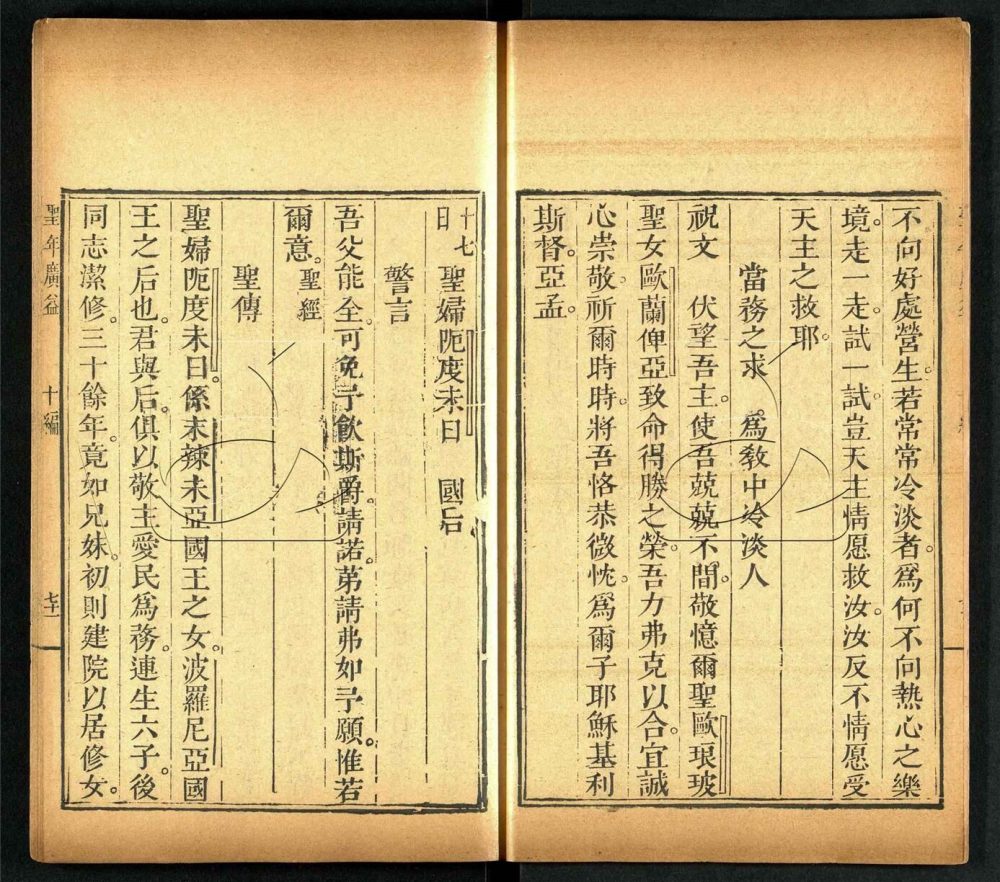 不向好處營生。若常常冷淡者。爲何不向熱心之樂
境。走一走。試一試。豈天主情愿救汝。汝反不情愿受
天主之救耶。
當務之求 。爲敎中冷淡人
祝文 伏望吾主。使吾兢兢不間。敬憶爾聖歐琅玻
聖女歐蘭俾亞致命得勝之榮。吾力弗克以合宜誠
心崇敬。祈爾時時。將吾恪恭微忱。爲爾子耶穌基利
斯督。亞孟。
十七日 聖婦阨度未日 國后
警言
吾父能全。可免予飮斯爵。請諾。苐請弗如予願。惟若
爾意。聖經
聖傳
聖婦阨度未日。係末辣未亞國王之女。波羅尼亞國
王之后也。君與后。俱以敬主愛民爲務。連生六子。後
同志潔修。三十餘年。竟如兄妹。初則建院以居修女。
聖年廣益 十編 七十一